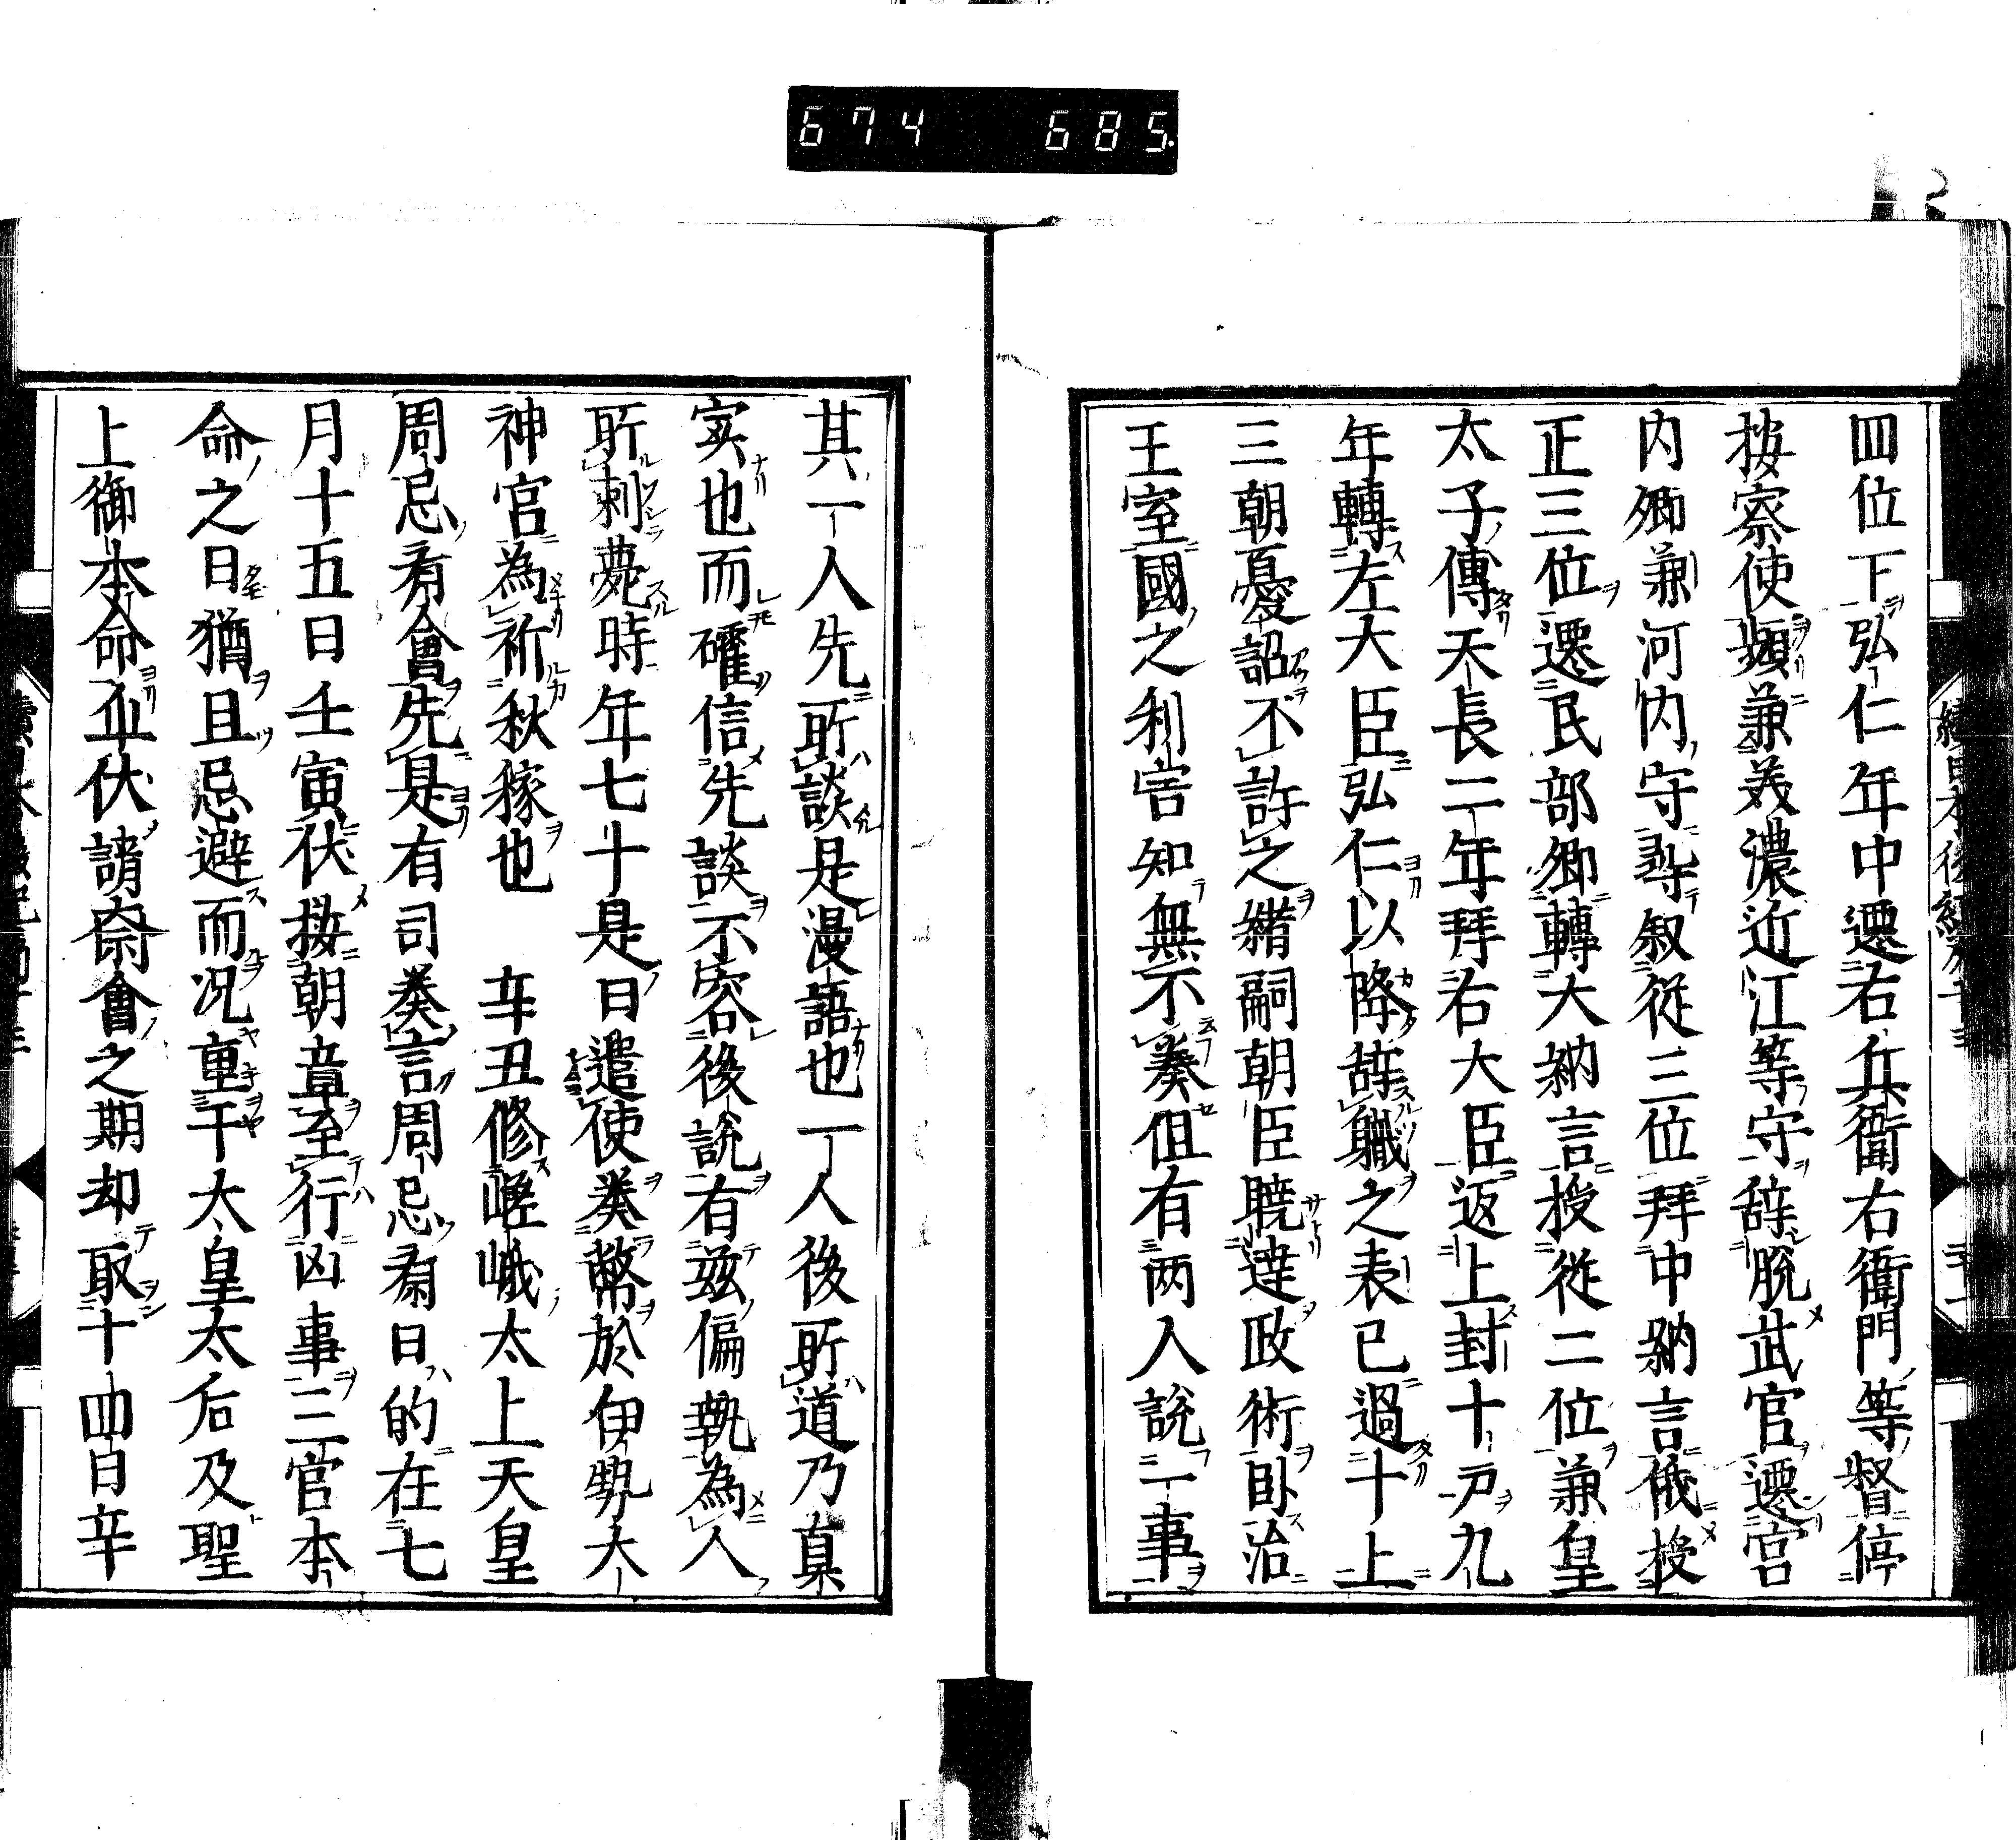 674 685.
四位下弘仁年中遷右兵衛右衛門等督停
按察使頻兼美濃近江等守辞脱武官遷宮
内卿兼河内守尋叙従三位拜中納言俄授
正三位遷民部卿轉大納言授從二位兼皇
太子傳天長二年拜右大臣返上封十戸九
年轉左大臣弘仁以降辞職之表已過十上
三朝憂詔不許之緒嗣朝臣曉達政術臥治
王室國之利害知無不奏但有两人說一事
其一人先所談是漫語也一人後所道乃真
実也而確信先談不容後說有兹偏執為人
所刺薨時年七十是日遣使奏幣於伊勢大
神宮為祈秋稼也 辛丑修嵯峨太上天皇
周忌斎會先是有司奏言周忌斎日的在七
月十五日壬寅伏按朝章至行凶事三官本
命之日猶且忌避而况重干太皇太后及聖
上御本命並伏請斎會之期却取十四日辛